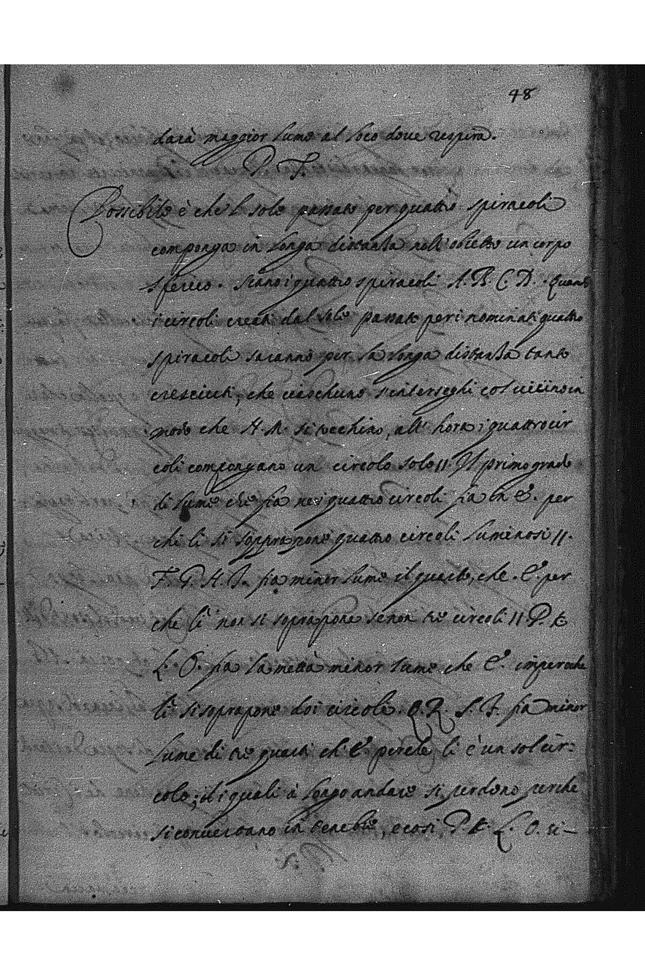 48
darà maggior lume al loco dove respira.
P. T.
Possibile è che l sole passato per quattro spiracoli
componga in longa distanza nell' obietto un corpo
sferico. siano i quattro spiracoli A. B. C. D. Quando
i circoli creati dal sole passato per i nominati quattro
spiracoli saranno per la longa distanza tanto
cresciuti, che ciaschuno s'interseghi col vicino in
modo che si tocchino, all' hora i quattro cir
coli compongano un circolo solo || Il primo grado
di lume che sia nei quattro circoli sia in E. per
che li si soprapone quattro circoli luminosi ||.
F. G. H. I. sia minor lume il quarto, che. E. per
che lì non si soprapone se non tre circoli || P. K
L. O. sia la metà minor lume che E. imperoche
lì si soprapone doi circoli. Q. R. S. T. sia minor
lume di tre quarti ch' E. perche li è un sol cir-
colo; il quali à longo andare si perdono perche
si convertano in tenebre, e così P. K. L. O. ri-